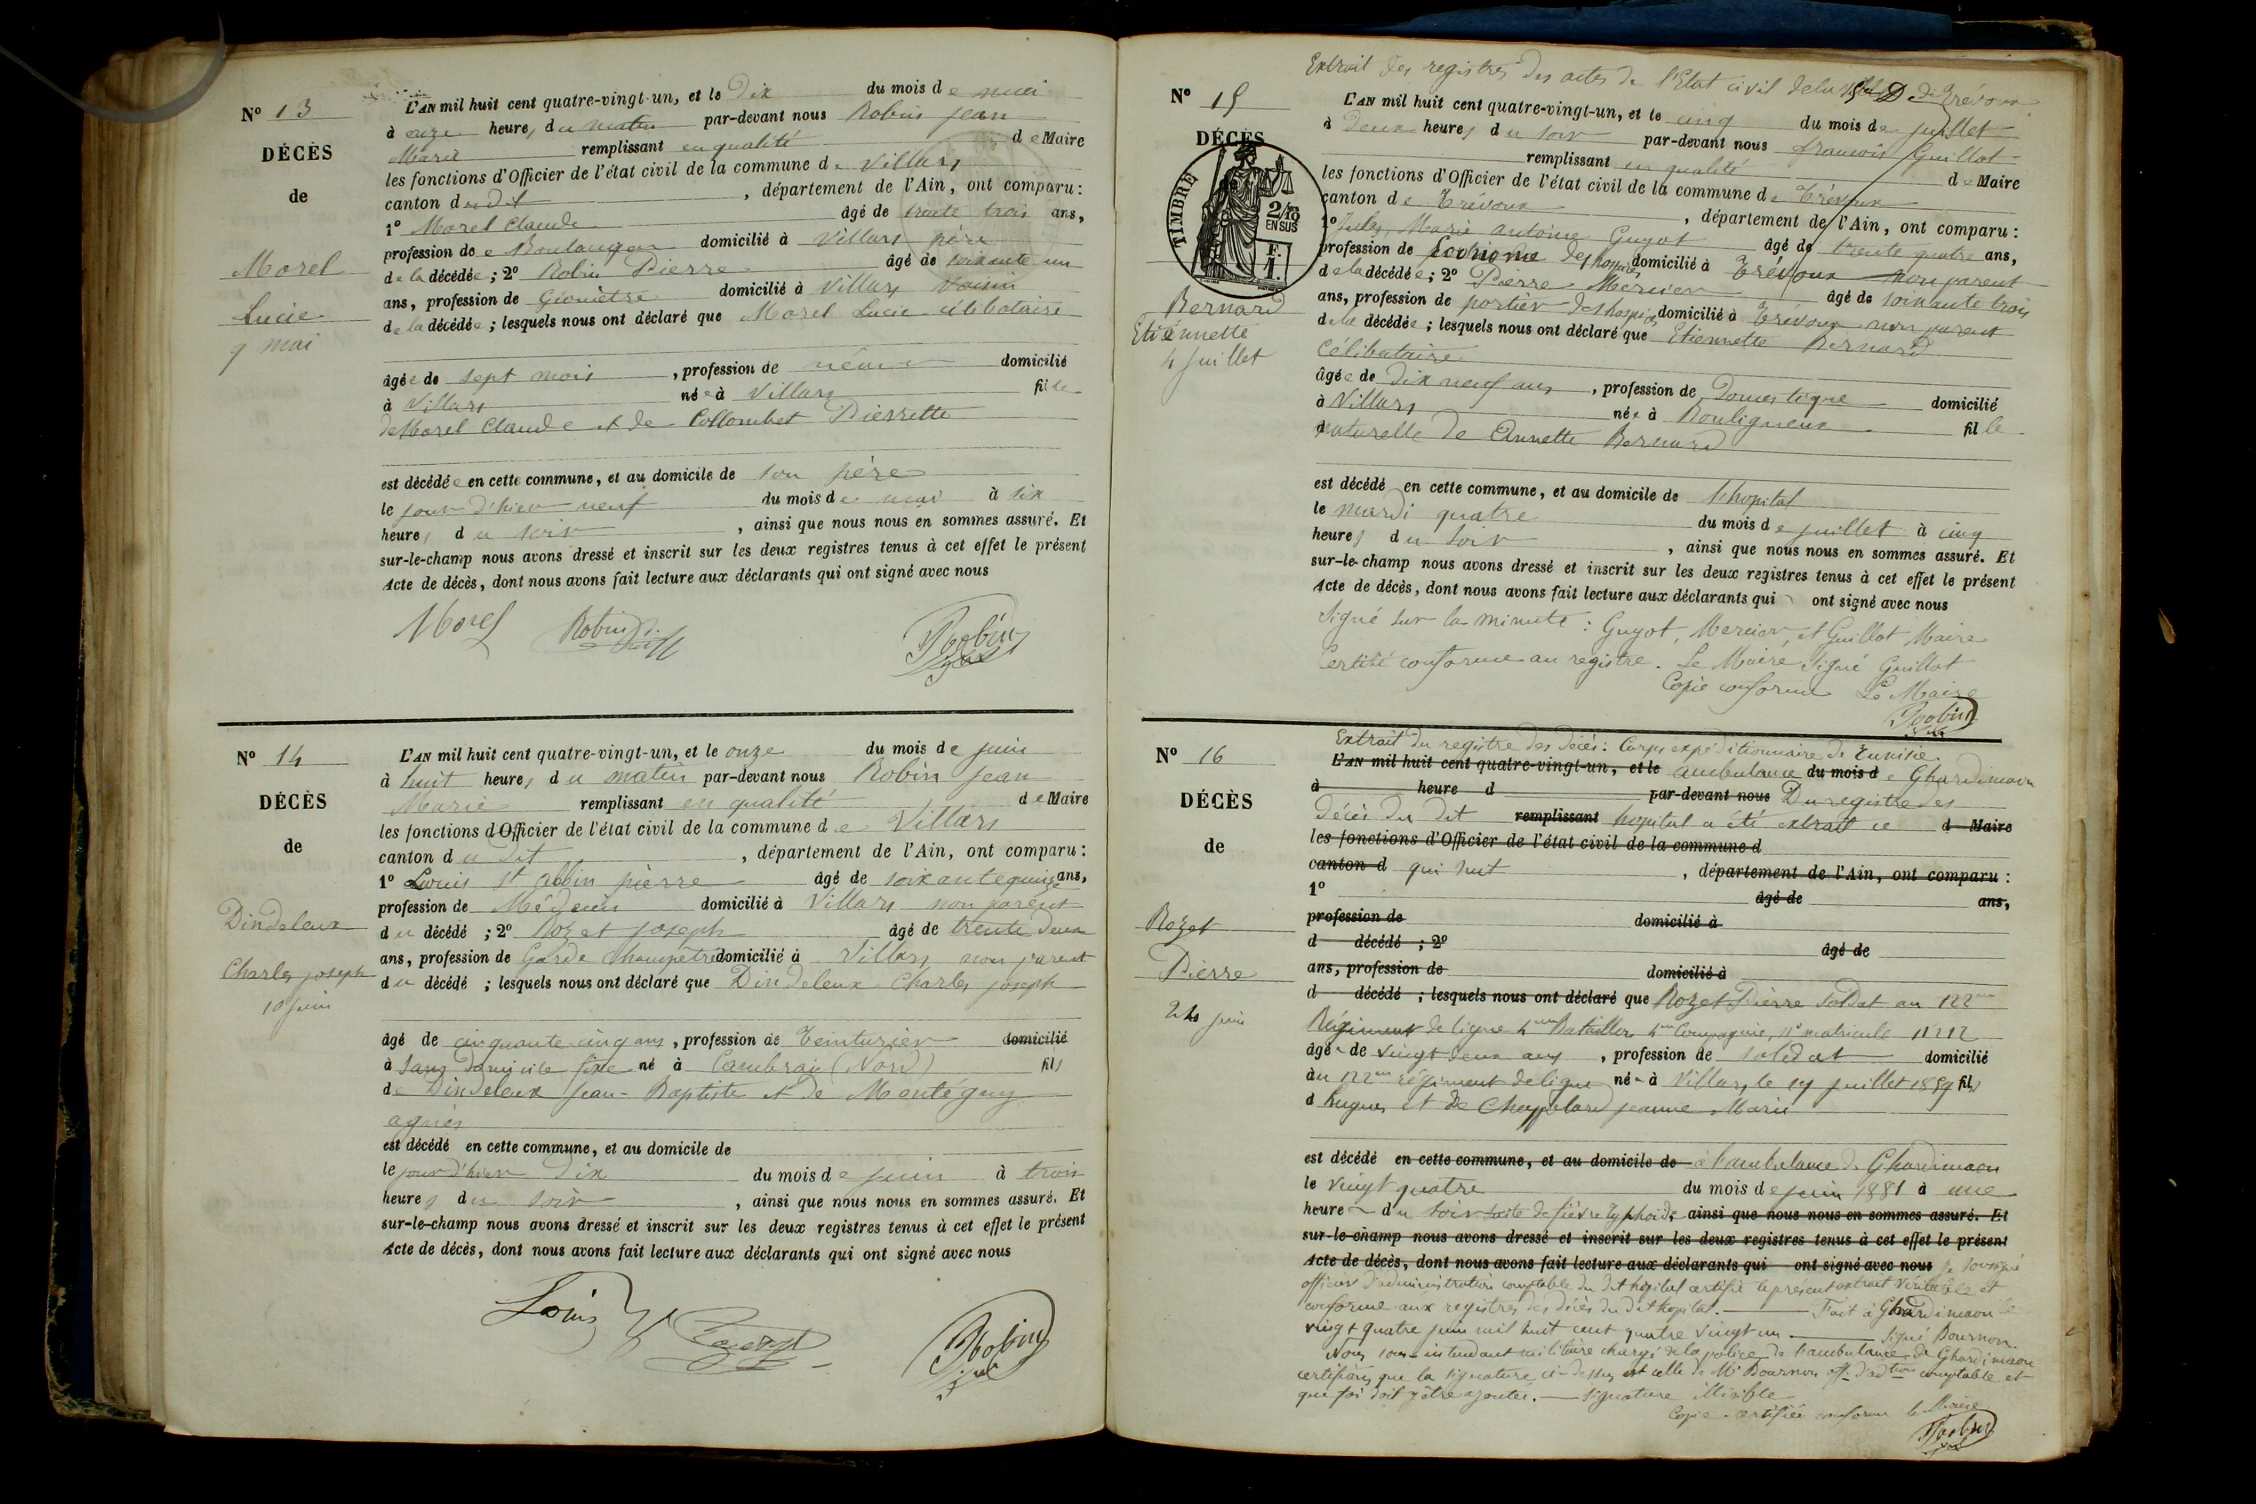 N° 13
DÉCÈS
de
Morel
Lucie
9 mai
L'AN mil huit cent quatre-vingt-un, et le Dix du mois de mai
à onze heures du matin par-devant nous Robin Jean
Marie remplissant en qualité de Maire
les fonctions d'Officier de l'état civil de la commune de Villars
canton du dit, département de l'Ain, ont comparu :
1° Morel Claude âgé de trente trois ans,
profession de Boulanger domicilié à Villars père
de la décédée ; 2° Robin Pierre âgé de soixante un
ans, profession de Géomètre domicilié à Villars voisin
de la décédée ; lesquels nous ont déclaré que Morel Lucie célibataire
âgée de sept mois, profession de néant domicilié
à Villars née à Villars fille
de Morel Claude et de Collombet Pierrette
est décédée en cette commune, et au domicile de son père
le jour d'hier neuf du mois de mai à six
heures du soir, ainsi que nous nous en sommes assuré. Et
sur-le-champ nous avons dressé et inscrit sur les deux registres tenus à cet effet le présent
Acte de décès, dont nous avons fait lecture aux déclarants qui ont signé avec nous
Morel Robin Robin
N° 14
DÉCÈS
de
Dindeleux
Charles joseph
10 juin
L'AN mil huit cent quatre-vingt-un, et le onze du mois de juin
à huit heures du matin par-devant nous Robin Jean
Marie remplissant en qualité de Maire
les fonctions d'Officier de l'état civil de la commune de Villars
canton du dit, département de l'Ain, ont comparu :
1° Louis St Albin pierre âgé de soixante quinze ans,
profession de Médecin domicilié à Villars non parent
du décédé ; 2° Rozet joseph âgé de trente deux
ans, profession de Garde Champêtre domicilié à Villars non parent
du décédé ; lesquels nous ont déclaré que Dindeleux Charles joseph
âgé de cinquante cinq ans, profession de Teinturier domicilié
à Sans domicile fixe né à Cambrai (Nord) fils
de Dindeleux Jean-Baptiste et de Montégny
agnès
est décédé en cette commune, et au domicile de
le jour d'hier dix du mois de juin à trois
heures du soir, ainsi que nous nous en sommes assuré. Et
sur-le-champ nous avons dressé et inscrit sur les deux registres tenus à cet effet le présent
Acte de décès, dont nous avons fait lecture aux déclarants qui ont signé avec nous
Louis Robin
Extrait des registres des actes de l'Etat civil de la Ville de Trévoux
N° 15
DÉCÈS
TIMBRE
2/10 EN SUS
F. 1.
Bernard
Etiennette
4 juillet
L'AN mil huit cent quatre-vingt-un, et le cinq du mois de juillet
à Deux heures du soir par-devant nous francois Guillot
remplissant en qualité de Maire
les fonctions d'Officier de l'état civil de la commune de Trévoux
canton de Trévoux, département de l'Ain, ont comparu :
1° Jules Marie antoine Guyot âgé de trente quatre ans,
profession de Econome des hospices domicilié à Trévoux non parent
de la décédée ; 2° Pierre Mercier âgé de soixante trois
ans, profession de portier des hospices domicilié à Trévoux non parent
de la décédée ; lesquels nous ont déclaré que Etiennette Bernard
Célibataire
âgée de Dix neuf ans, profession de Domestique domicilié
à Villars née à Bouligneux fille
naturelle de Annette Bernard
est décédé en cette commune, et au domicile de l'hopital
le mardi quatre du mois de juillet à cinq
heures du soir, ainsi que nous nous en sommes assuré. Et
sur-le-champ nous avons dressé et inscrit sur les deux registres tenus à cet effet le présent
Acte de décès, dont nous avons fait lecture aux déclarants qui ont signé avec nous
Signé sur la minute : Guyot, Mercier, et Guillot Maire
Certifié conforme au registre. Le Maire signé Guillot
Copie conforme Le Maire
Robin
N° 16
DÉCÈS
de
Rozet
Pierre
24 juin
Extrait du registre des décès : Corps expéditionnaire de Tunisie.
L'AN mil huit cent quatre-vingt-un, et le ambulance du mois de Ghardimaou
à heure d par-devant nous Du registre des
Décès du dit remplissant hopital a été extrait ce d Maire
les fonctions d'Officier de l'état civil de la commune d
canton d qui suit, département de l'Ain, ont comparu :
1° âgé de ans,
profession de domicilié à
d décédé ; 2° âgé de
ans, profession de domicilié à
d décédé ; lesquels nous ont déclaré que Rozet Pierre Soldat au 122me
Régiment de ligne 4me Bataillon 4me Compagnie, n° matricule 11212
âgé de vingt deux ans, profession de soldat domicilié
au 122me régiment de ligne né à Villars, le 19 juillet 1859 fils
d hugues et de Chappeland jeanne Marie
est décédé en cette commune, et au domicile de à l'ambulance de Ghardimaou
le vingt quatre du mois de juin 1881 à une
heure du soir suite de fièvre typhoïde, ainsi que nous nous en sommes assuré. Et
sur-le-champ nous avons dressé et inscrit sur les deux registres tenus à cet effet le présent
Acte de décès, dont nous avons fait lecture aux déclarants qui ont signé avec nous je soussigné
officier d'administration comptable du dit hopital certifie le présent extrait véritable et
conforme aux registres des décès du dit hopital. Fait à Ghardimaou le
vingt quatre juin mil huit cent quatre vingt un signé Bournon.
Nous sous-intendant militaire chargé de la police de l'ambulance de Ghardimaou
certifions que la signature ci-dessus est celle de Mr Bournon off. d'adtion comptable et
que foi doit y être ajoutée. signature illisible
Copie certifiée conforme le Maire
Robin